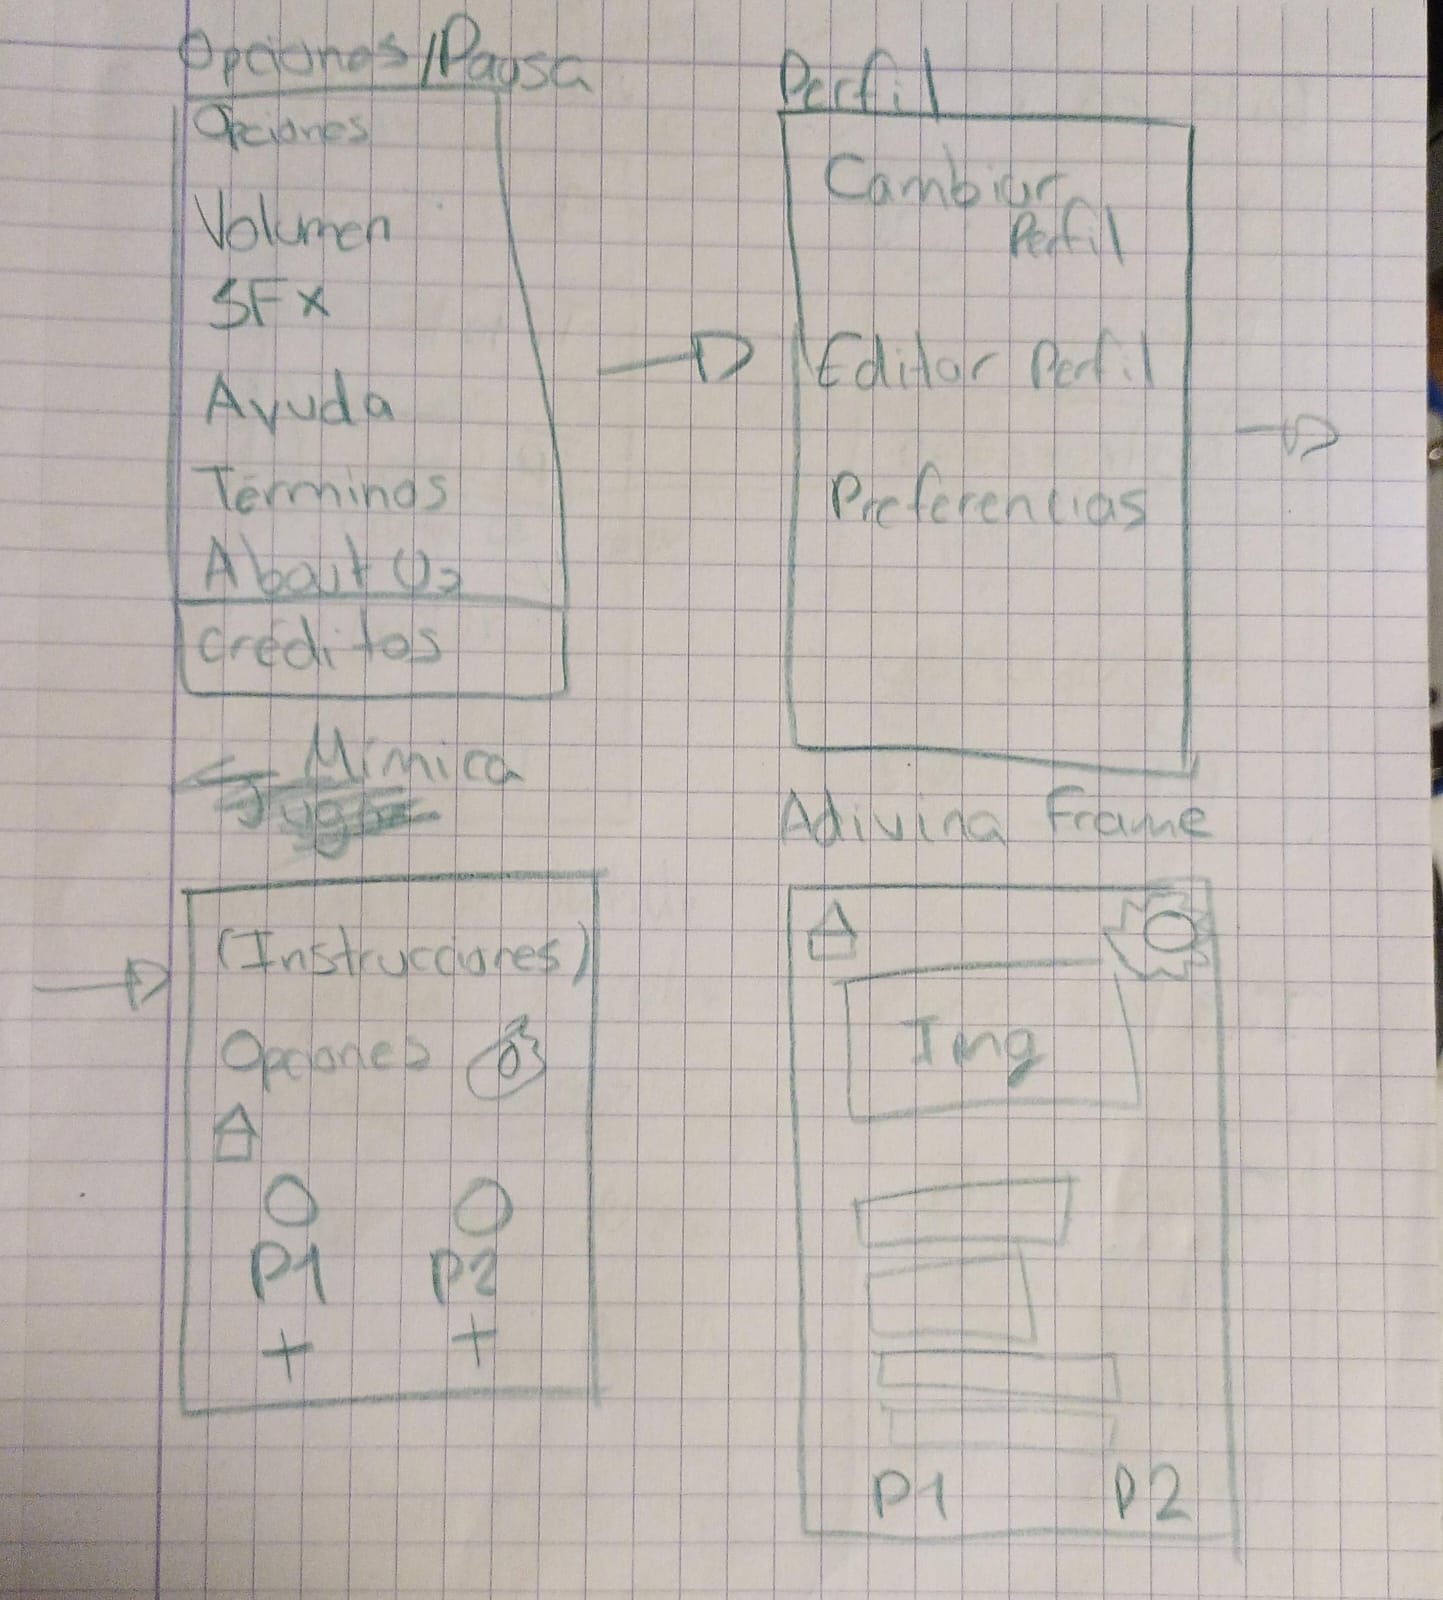 Opciones/Pausa
Opciones
Volumen
SFX
Ayuda
Terminos
About Us
creditos
Perfil
Cambiar
Perfil
Editar Perfil
Preferencias
Mimica
(Instrucciones)
Opciones
P1 P2
+ +
Adivina Frame
Img
P1 P2